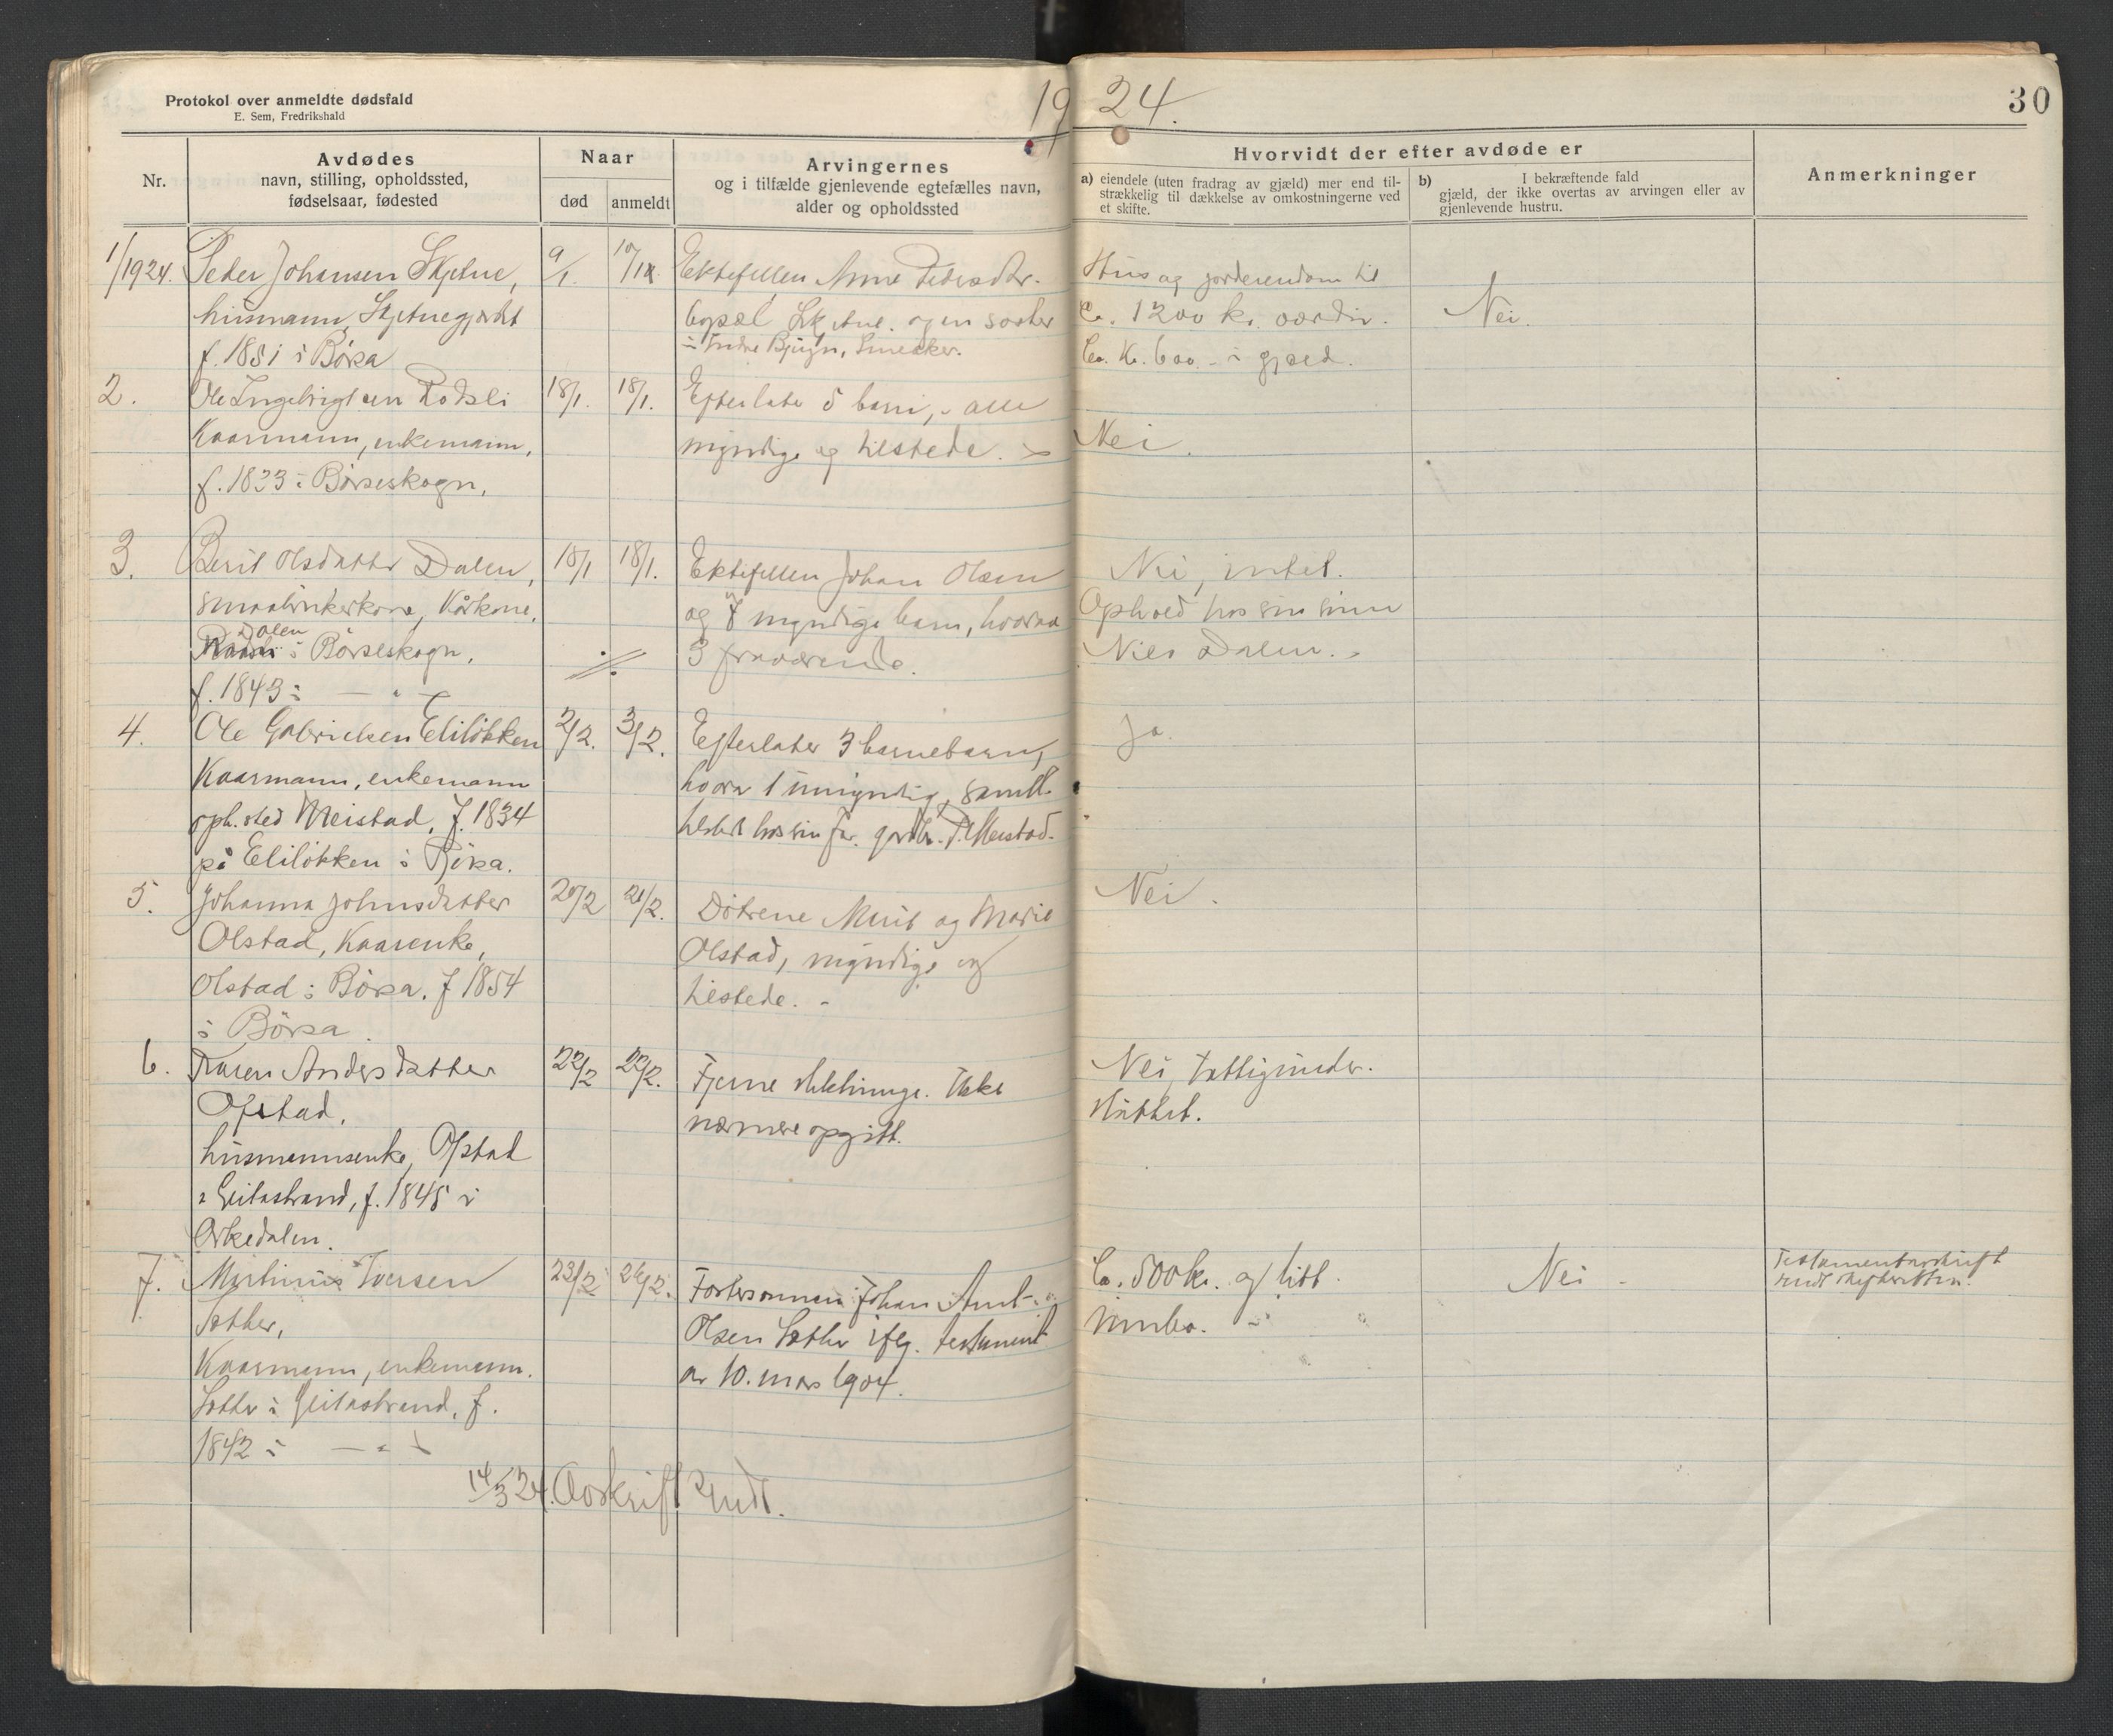 Protokol over anmeldte dødsfald
E. Sem, Fredrikshald
1924.
30
Nr.
Avdødes
navn, stilling, opholdssted,
fødselsaar, fødested
Naar
død
anmeldt
Arvingernes
og i tilfælde gjenlevende egtefælles navn,
alder og opholdssted
Hvorvidt der efter avdøde er
a) eiendele (uten fradrag av gjæld) mer end til-
strækkelig til dækkelse av omkostningerne ved
et skifte.
b) I bekræftende fald
gjæld, der ikke overtas av arvingen eller av
gjenlevende hustru.
Anmerkninger
1/1924.
Peder Johansen Skjetne,
husmann,
f. 1851 i Börsa
9/1.
10/1
Ektefellen Anne Pedersdtr.
Skjetne. og en søster
i Indre Bjugn,
Hus og jordeiendom til
Ca. 1200 kr. værdi.
Ca. Kr. 600.- i gjæld.
Nei.
2.
Ole Ingebrigtsen
Kaarmann, enkemann,
f. 1833 i Börseskogn.
18/1.
18/1.
Efterlater 5 barn, - alle
myndige og tilstede.
Nei.
3.
Berit Olsdatter Dalen,
smaabrukerkone, Kårkone,
Dalen
i Börseskogn,
f. 1843 i — " —
18/1
18/1.
Ektefellen Johan Olsen
og 7 myndige barn, hvorav
3 fraværende.
Nei, intet.
Ophold hos sin sönn
Nils Dalen.
4.
Ole Gabrielsen Eliløkken
Kaarmann, enkemann
oph.sted Meistad, f. 1834
på Eliløkken i Börsa.
2/2.
3/2.
Efterlater 3 barnebarn,
hvorav 1 umyndig, samtl.
tilsted hos sin far, gardbr. P. Meistad.
Ja.
5.
Johanna Johnsdatter
Olstad, Kaarenke,
Olstad i Börsa. f 1854
i Börsa.
20/2
21/2.
Dötrene Marit og Marie
Olstad, myndige og
tilstede. -
Nei.
6.
Karen Andersdatter
Ofstad,
husmannsenke, Ofstad
i Geitastrand, f. 1845 i
Orkedalen.
22/2
22/2.
Fjerne slektninge. Ikke
nærmere opgitt.
Nei, Fattigunder-
støttet.
7.
Martinus Iversen
Sæther,
Kaarmann, enkemann.
Sæther i Geitastrand, f.
1842 i — " —
23/2
24/2.
Fostersønnen Johan Arnt
Olsen Sæther iflg. testament
av 10. mars 1904.
Ca. 500 kr. og litt
innbo.
Nei
Testamentavskrift
sendt skifteretten.
14/3 24. Avskrift sendt.